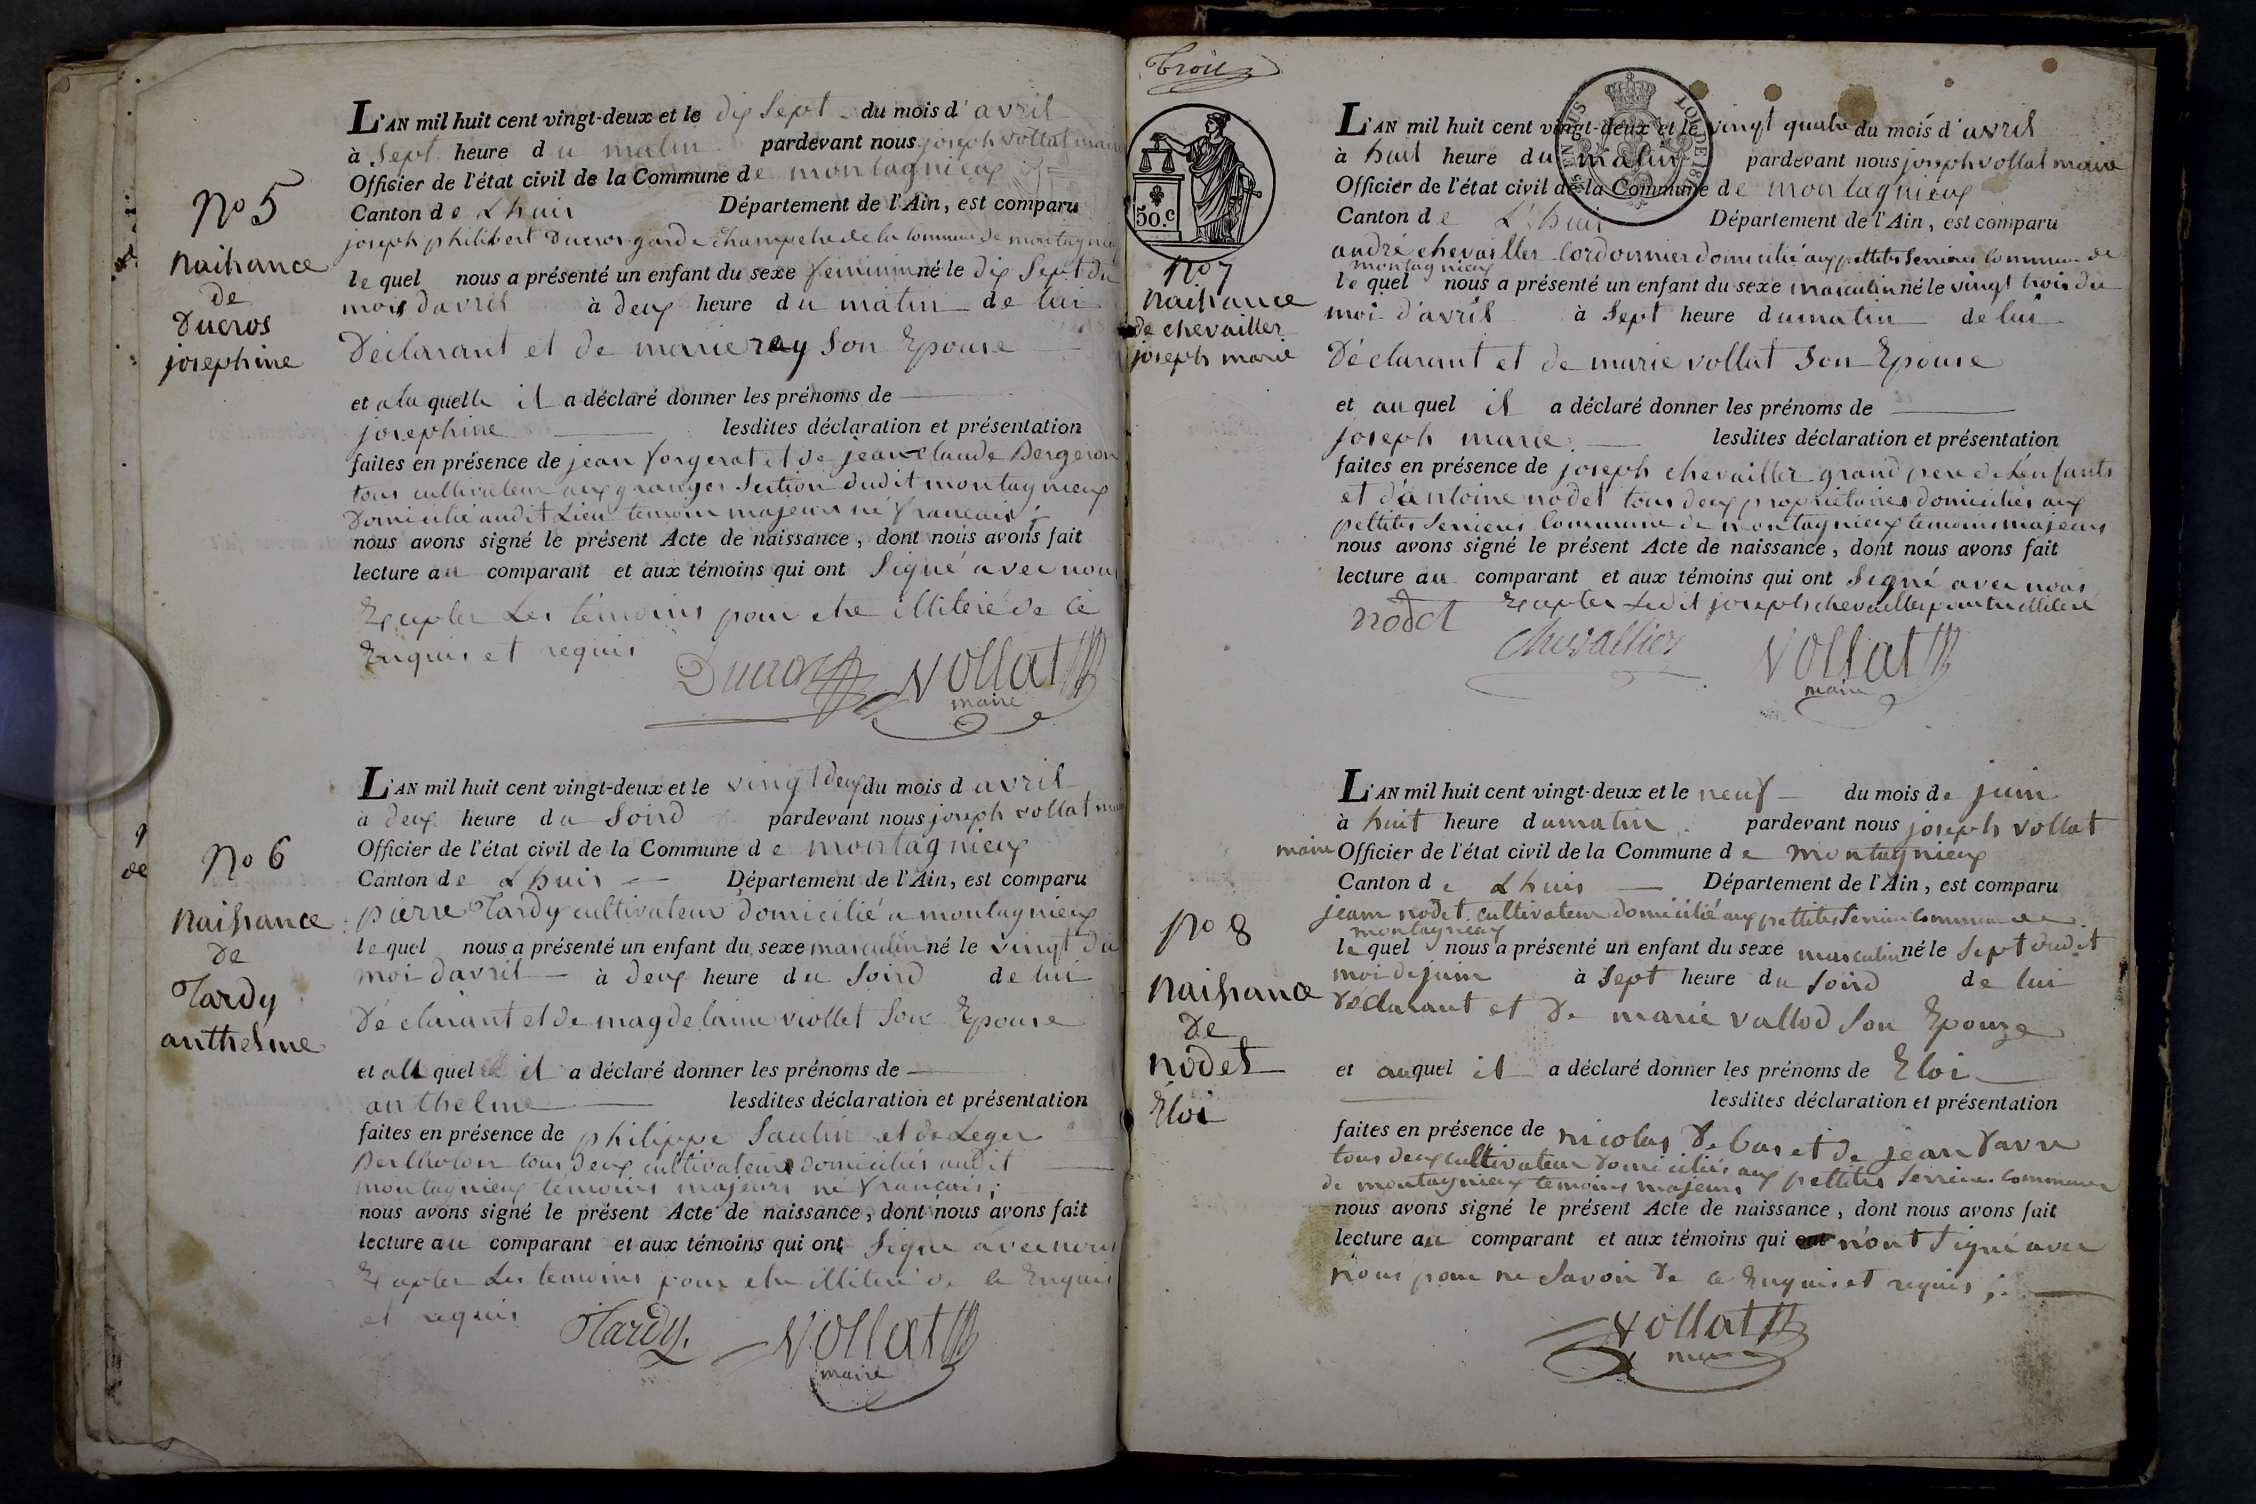 No 5
Naissance
de
Ducros
josephine
L'AN mil huit cent vingt-deux et le dix Sept du mois d'avril
à Sept heure du matin pardevant nous joseph vollat maire
Officier de l'état civil de la Commune de montagnieux
Canton de Lhuis Département de l'Ain, est comparu
joseph philibert Ducros garde champetre de la commune de montagnieux
lequel nous a présenté un enfant du sexe feminin né le dix Sept du
mois davril à deux heure du matin de lui
Déclarant et de marie ray Son Epouse
et a la quelle il a déclaré donner les prénoms de
josephine lesdites déclaration et présentation
faites en présence de jean forgerat et de jean claude Bergeron
tous cultivateur aux granges Section dudit montagnieux
Domicilié audit Lieu temoin majeurs né francais;
nous avons signé le présent Acte de naissance, dont nous avons fait
lecture au comparant et aux témoins qui ont Signé avec nous
Excepter Les témoins pour etre illiteré de ce
Enquis et requis
Ducros Vollat
maire
No 6
Naissance
De
Tardy
anthelme
L'AN mil huit cent vingt-deux et le vingt deux du mois d avril
à deux heure du Soird pardevant nous joseph vollat maire
Officier de l'état civil de la Commune de montagnieux
Canton de Lhuis Département de l'Ain, est comparu
pierre Tardy cultivateur domicilié a montagnieux
lequel nous a présenté un enfant du sexe masculin né le vingt du
moi davril à deux heure du Soird de lui
Déclarant et de magdelaine viollet Son Epouse
et au quel il a déclaré donner les prénoms de
anthelme lesdites déclaration et présentation
faites en présence de philippe Saulin et de Leger
Bertholon tous deux cultivateurs domiciliés audit
montagnieux témoins majeurs né francais;
nous avons signé le présent Acte de naissance, dont nous avons fait
lecture au comparant et aux témoins qui ont Signe avec nous
Excepter Les temoins pour etre illiteré de ce Enquis
et requis
Tardy Vollat
maire
Trois
50.c
No 7
Naissance
de chevailler
joseph marie
L'AN mil huit cent vingt-deux et le vingt quatre du mois d'avril
à huit heure du matin pardevant nous joseph vollat maire
Officier de l'état civil de la Commune de montagnieux
Canton de L'huis Département de l'Ain, est comparu
andré chevailler Cordonnier domicilié aux pettites Serrieres Commune de
montagnieux
lequel nous a présenté un enfant du sexe masculin né le vingt trois du
moi d'avril à Sept heure du matin de lui
Déclarant et de marie vollat Son Epouse
et au quel il a déclaré donner les prénoms de
joseph marie lesdites déclaration et présentation
faites en présence de joseph chevailler grand pere de Lenfants
et d'antoine nodet tous deux propriétaires domiciliés aux
pettites Serrieres Commune de montagnieux temoins majeurs
nous avons signé le présent Acte de naissance, dont nous avons fait
lecture au comparant et aux témoins qui ont Signé avec nous
Excepter Ledit joseph chevailler pour etre illiteré
nodet chevallier Vollat
maire
No 8
Naissance
De
nodet
Eloi
L'AN mil huit cent vingt-deux et le neuf du mois de juin
à huit heure du matin pardevant nous joseph vollat
maire Officier de l'état civil de la Commune de montagnieux
Canton de Lhuis Département de l'Ain, est comparu
jeam nodet cultivateur domicilié aux pettites Serrieres Commune de
montagnieux
lequel nous a présenté un enfant du sexe masculin né le Sept dudit
moi de juin à Sept heure du Soird de lui
Déclarant et De marie vallod Son Epouze
et auquel il a déclaré donner les prénoms de Eloi
lesdites déclaration et présentation
faites en présence de nicolas De bas et de jean
tous deux cultivateur Domiciliés aux pettites Serrieres commune
de montagnieux temoins majeurs
nous avons signé le présent Acte de naissance, dont nous avons fait
lecture au comparant et aux témoins qui n'ont Signé avec
nous pour ne Savoir De ce Enquis et requis;
Vollat